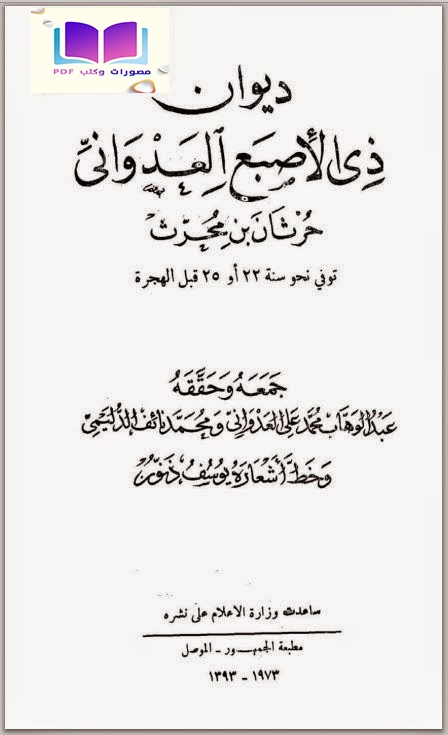 مصورات وكتب PDF
ديوان
ذى الأصبع العدوانى
حرثان بن محرث
توفي نحو سنة ٢٢ أو ٢٥ قبل الهجرة
جمعه وحققه
عبد الوهاب محمد على العدوانى ومحمد نائف الدليمى
وخط أشعاره يوسف ذنون
ساعدت وزارة الاعلام على نشره
مطبعة الجمهور - الموصل
١٩٧٣ - ١٣٩٣